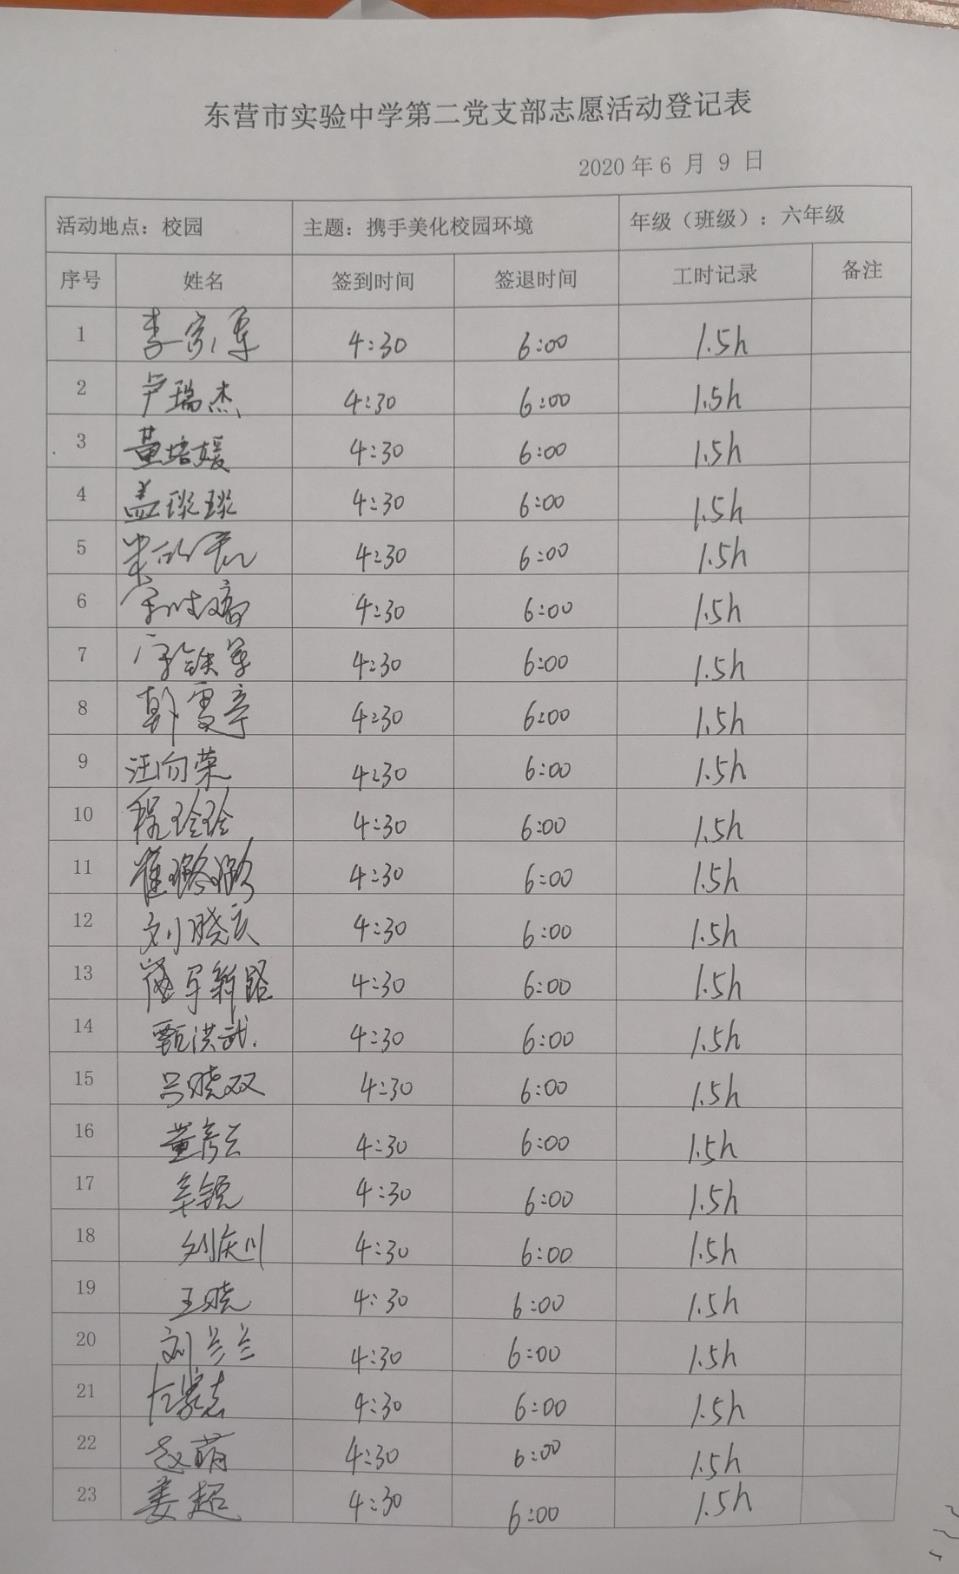 东营市实验中学第二党支部志愿活动登记表
2020年6月9日
活动地点：校园 主题：携手美化校园环境 年级（班级）：六年级
序号 姓名 签到时间 签退时间 工时记录 备注
1 李家军 4:30 6:00 1.5h
2 卢瑞杰 4:30 6:00 1.5h
3 董培媛 4:30 6:00 1.5h
4 盖琰琰 4:30 6:00 1.5h
5 4:30 6:00 1.5h
6 4:30 6:00 1.5h
7 4:30 6:00 1.5h
8 韩雪亭 4:30 6:00 1.5h
9 汪向荣 4:30 6:00 1.5h
10 程玲玲 4:30 6:00 1.5h
11 崔璐璐 4:30 6:00 1.5h
12 刘晓庆 4:30 6:00 1.5h
13 4:30 6:00 1.5h
14 甄洪武. 4:30 6:00 1.5h
15 吕晓双 4:30 6:00 1.5h
16 董彦云 4:30 6:00 1.5h
17 辛锐 4:30 6:00 1.5h
18 刘庆川 4:30 6:00 1.5h
19 王晓 4:30 6:00 1.5h
20 刘兰兰 4:30 6:00 1.5h
21 4:30 6:00 1.5h
22 赵萌 4:30 6:00 1.5h
23 姜超 4:30 6:00 1.5h